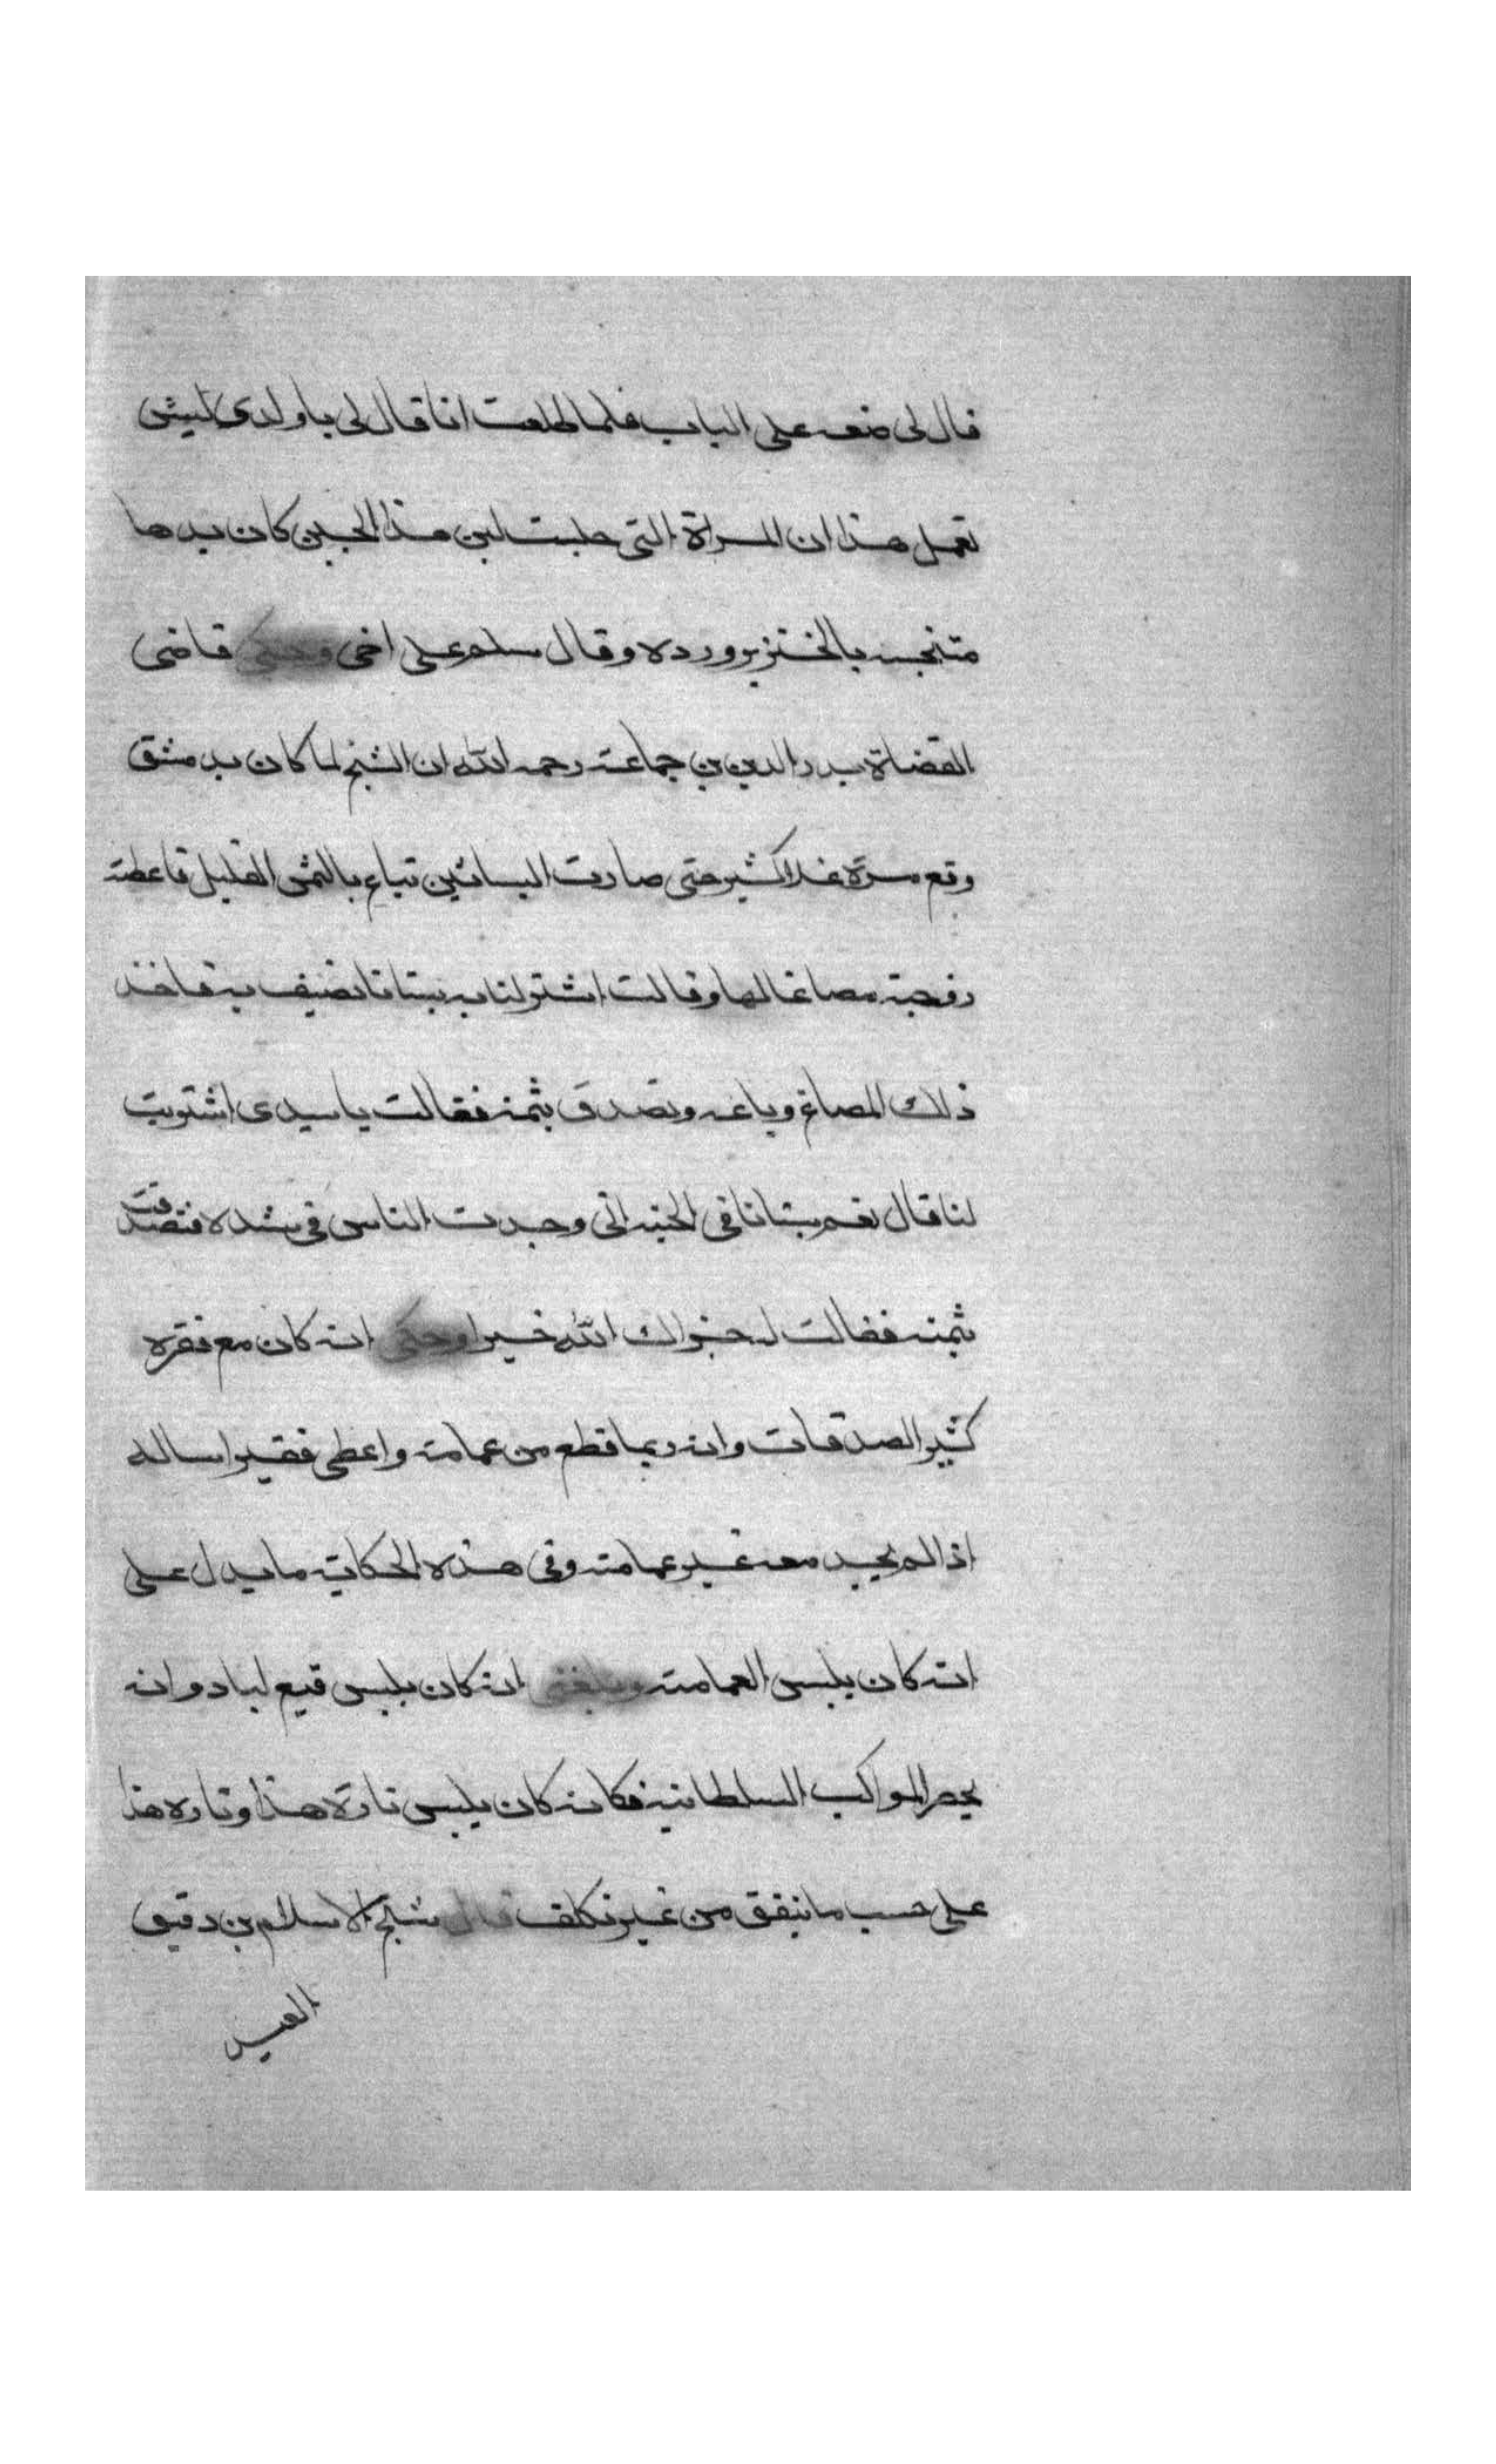 قال لى ضعه على الباب فلما طلعت انا قال لى يا ولدى ليش
تعمل هذا ان المراة التى حلبت لبن هذا الجبن كان يدها
متنجسه بالخنزير ورده وقال سلم على اخى وحكى قاضى
القضاة بدر الدين بن جماعة رحمه الله ان الشيخ لما كان بدمشق
وقع مرة غلا كثير حتى صارت البساتين تباع بالثمن القليل فاعطته
زوجته مصاغا لها وقالت اشتر لنا به بستانا نصيف به فاخذ
ذلك المصاغ وباعه وتصدق بثمنه فقالت يا سيدى اشتريت
لنا قال نعم بستانا فى الجنه انى وجدت الناس فى شده فتصدقت
بثمنه فقالت له جزاك الله خيرا وحكى انه كان مع فقره
كثير الصدقات وانه ربما قطع من عمامته واعطى فقيرا ساله
اذا لم يجد معه غير عمامته وفى هذه الحكاية ما يدل على
انه كان يلبس العمامة وبلغنى انه كان يلبس قبع لباد وانه
يحضر المواكب السلطانيه فكانه كان يلبس تارة هذا وتاره هذا
على حسب ما يتفق من غير تكلف قال شيخ الاسلام بن دقيق
العيد